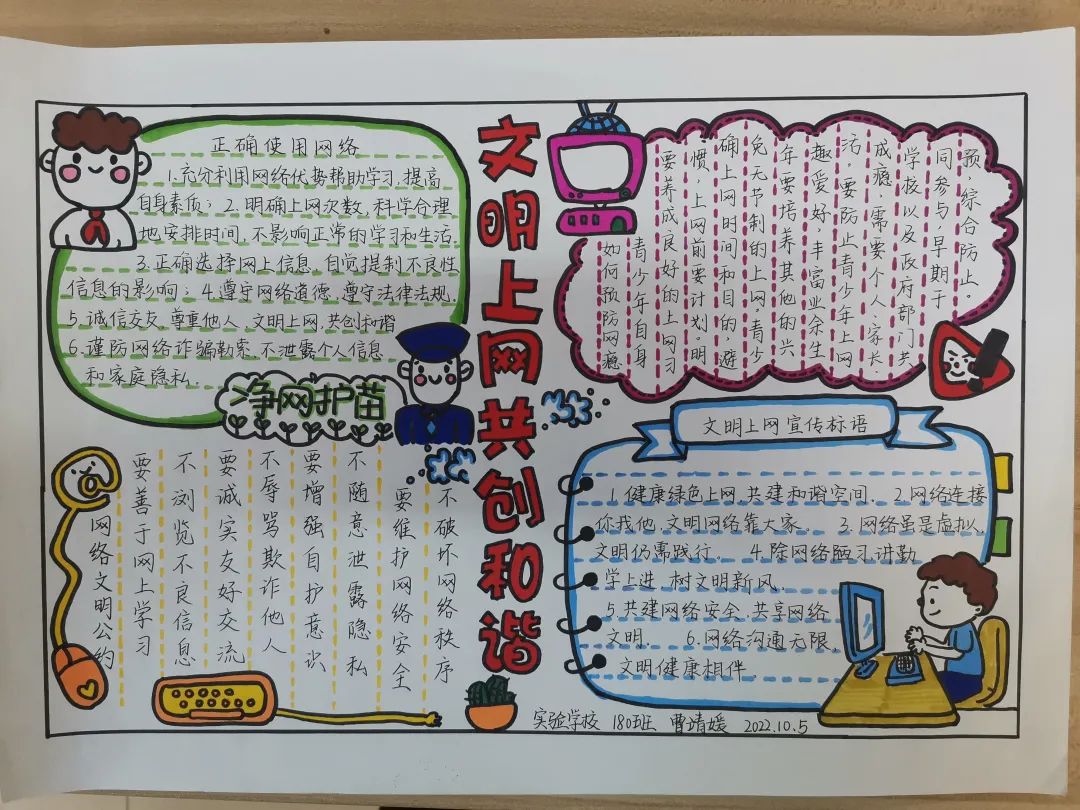 文明上网共创和谐
正确使用网络
1.充分利用网络优势帮助学习,提高
自身素质；2.明确上网次数,科学合理
地安排时间,不影响正常的学习和生活.
3.正确选择网上信息,自觉提制不良性
信息的影响；4.遵守网络道德,遵守法律法规.
5.诚信交友,尊重他人,文明上网,共创和谐
6.谨防网络诈骗勒索,不泄露个人信息
和家庭隐私.
净网护苗
如何预防网瘾
青少年自身
要养成良好的上网习
惯，上网前要计划。明
确上网时间和目的，避
免无节制的上网。青少
年要培养其他的兴
趣爱好，丰富业余生
活，要防止青少年上网
成瘾，需要个人、家长、
学校以及政府部门共
同参与，早期干
预，综合防止。
网络文明公约
要善于网上学习
不浏览不良信息
要诚实友好交流
不辱骂欺诈他人
要增强自护意识
不随意泄露隐私
要维护网络安全
不破坏网络秩序
文明上网宣传标语
1.健康绿色上网,共建和谐空间. 2.网络连接
你我他,文明网络靠大家. 3.网络虽是虚拟,
文明仍需践行. 4.除网络陋习讲勤
学上进 树文明新风.
5.共建网络安全 共享网络
文明. 6.网络沟通无限,
文明健康相伴.
实验学校 180班 曹靖媛 2022.10.5